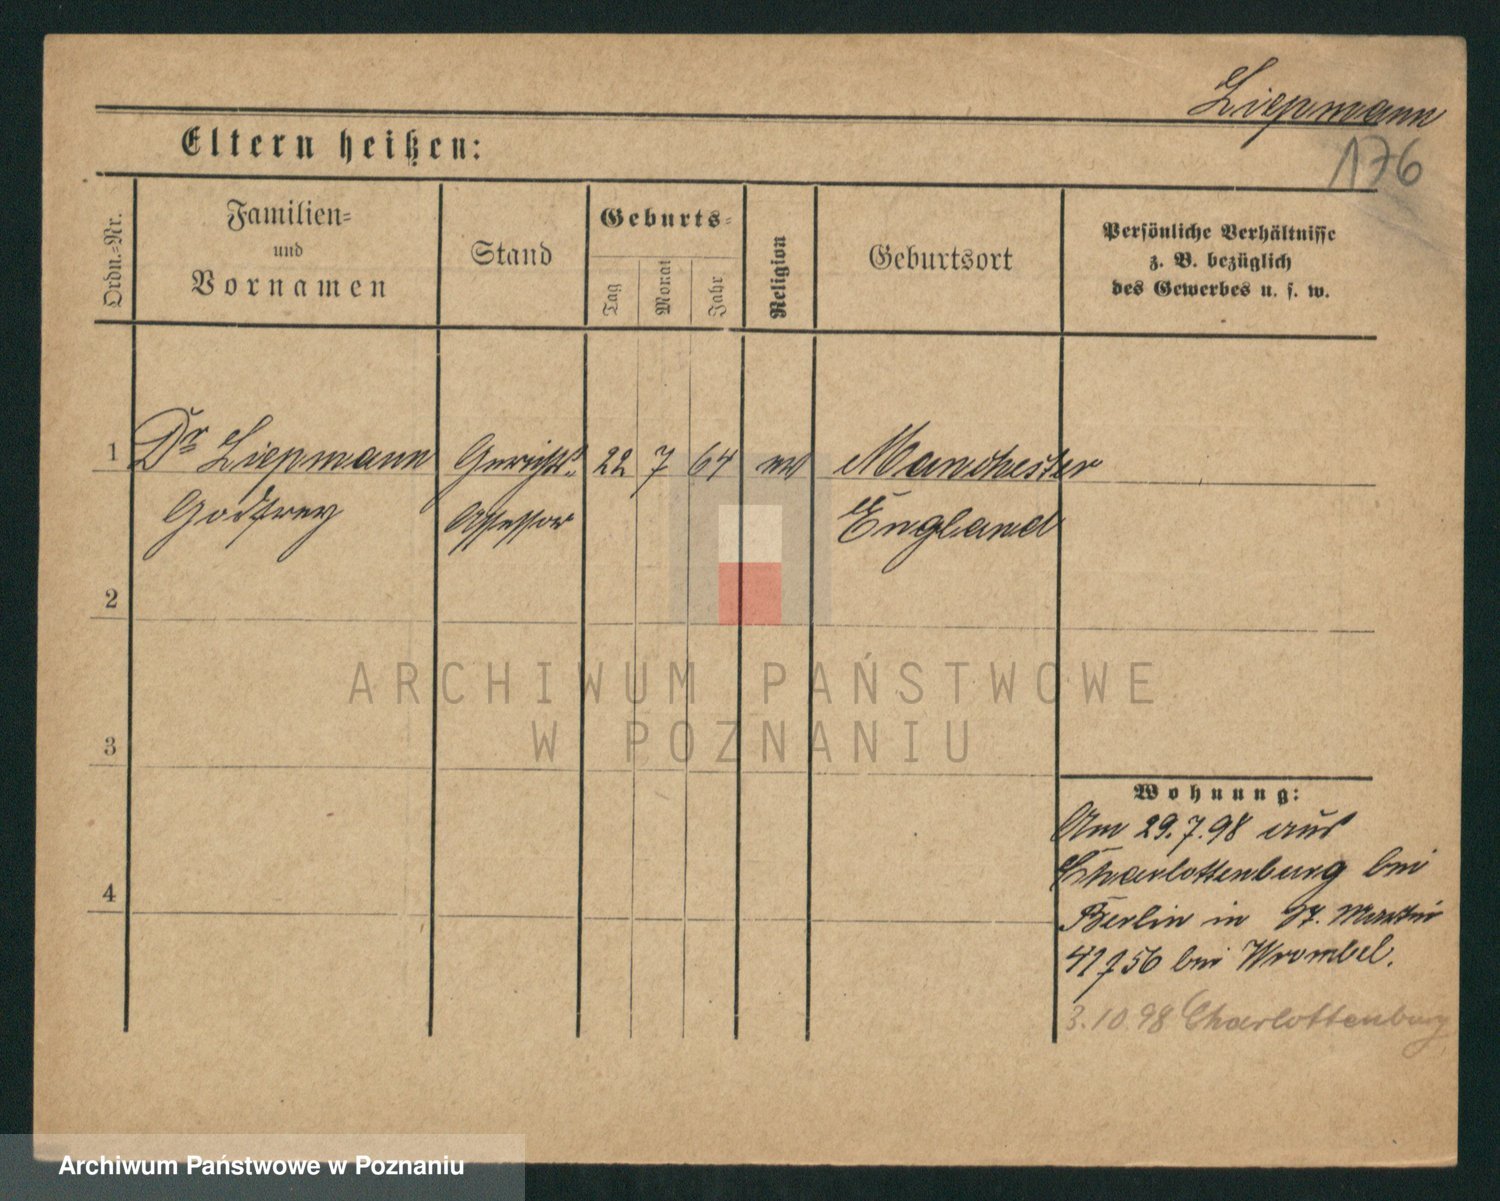 Liepmann
176
Eltern heißen:
Ordn.-Nr.
Familien-
und
Vornamen
Stand
Geburts-
Tag
Monat
Jahr
Religion
Geburtsort
Persönliche Verhältnisse
z. B. bezüglich
des Gewerbes u. s. w.
1
Dr Liepmann
Godfrey
Gerichts-
Assessor
22
7
64
ev
Manchester
England
2
3
4
ARCHIWUM PAŃSTWOWE
W POZNANIU
Wohnung:
Am 29.7.98 aus
Charlottenburg bei
Berlin in St. Martin
bei Wrombel.
3.10.98 Charlottenburg
Archiwum Państwowe w Poznaniu